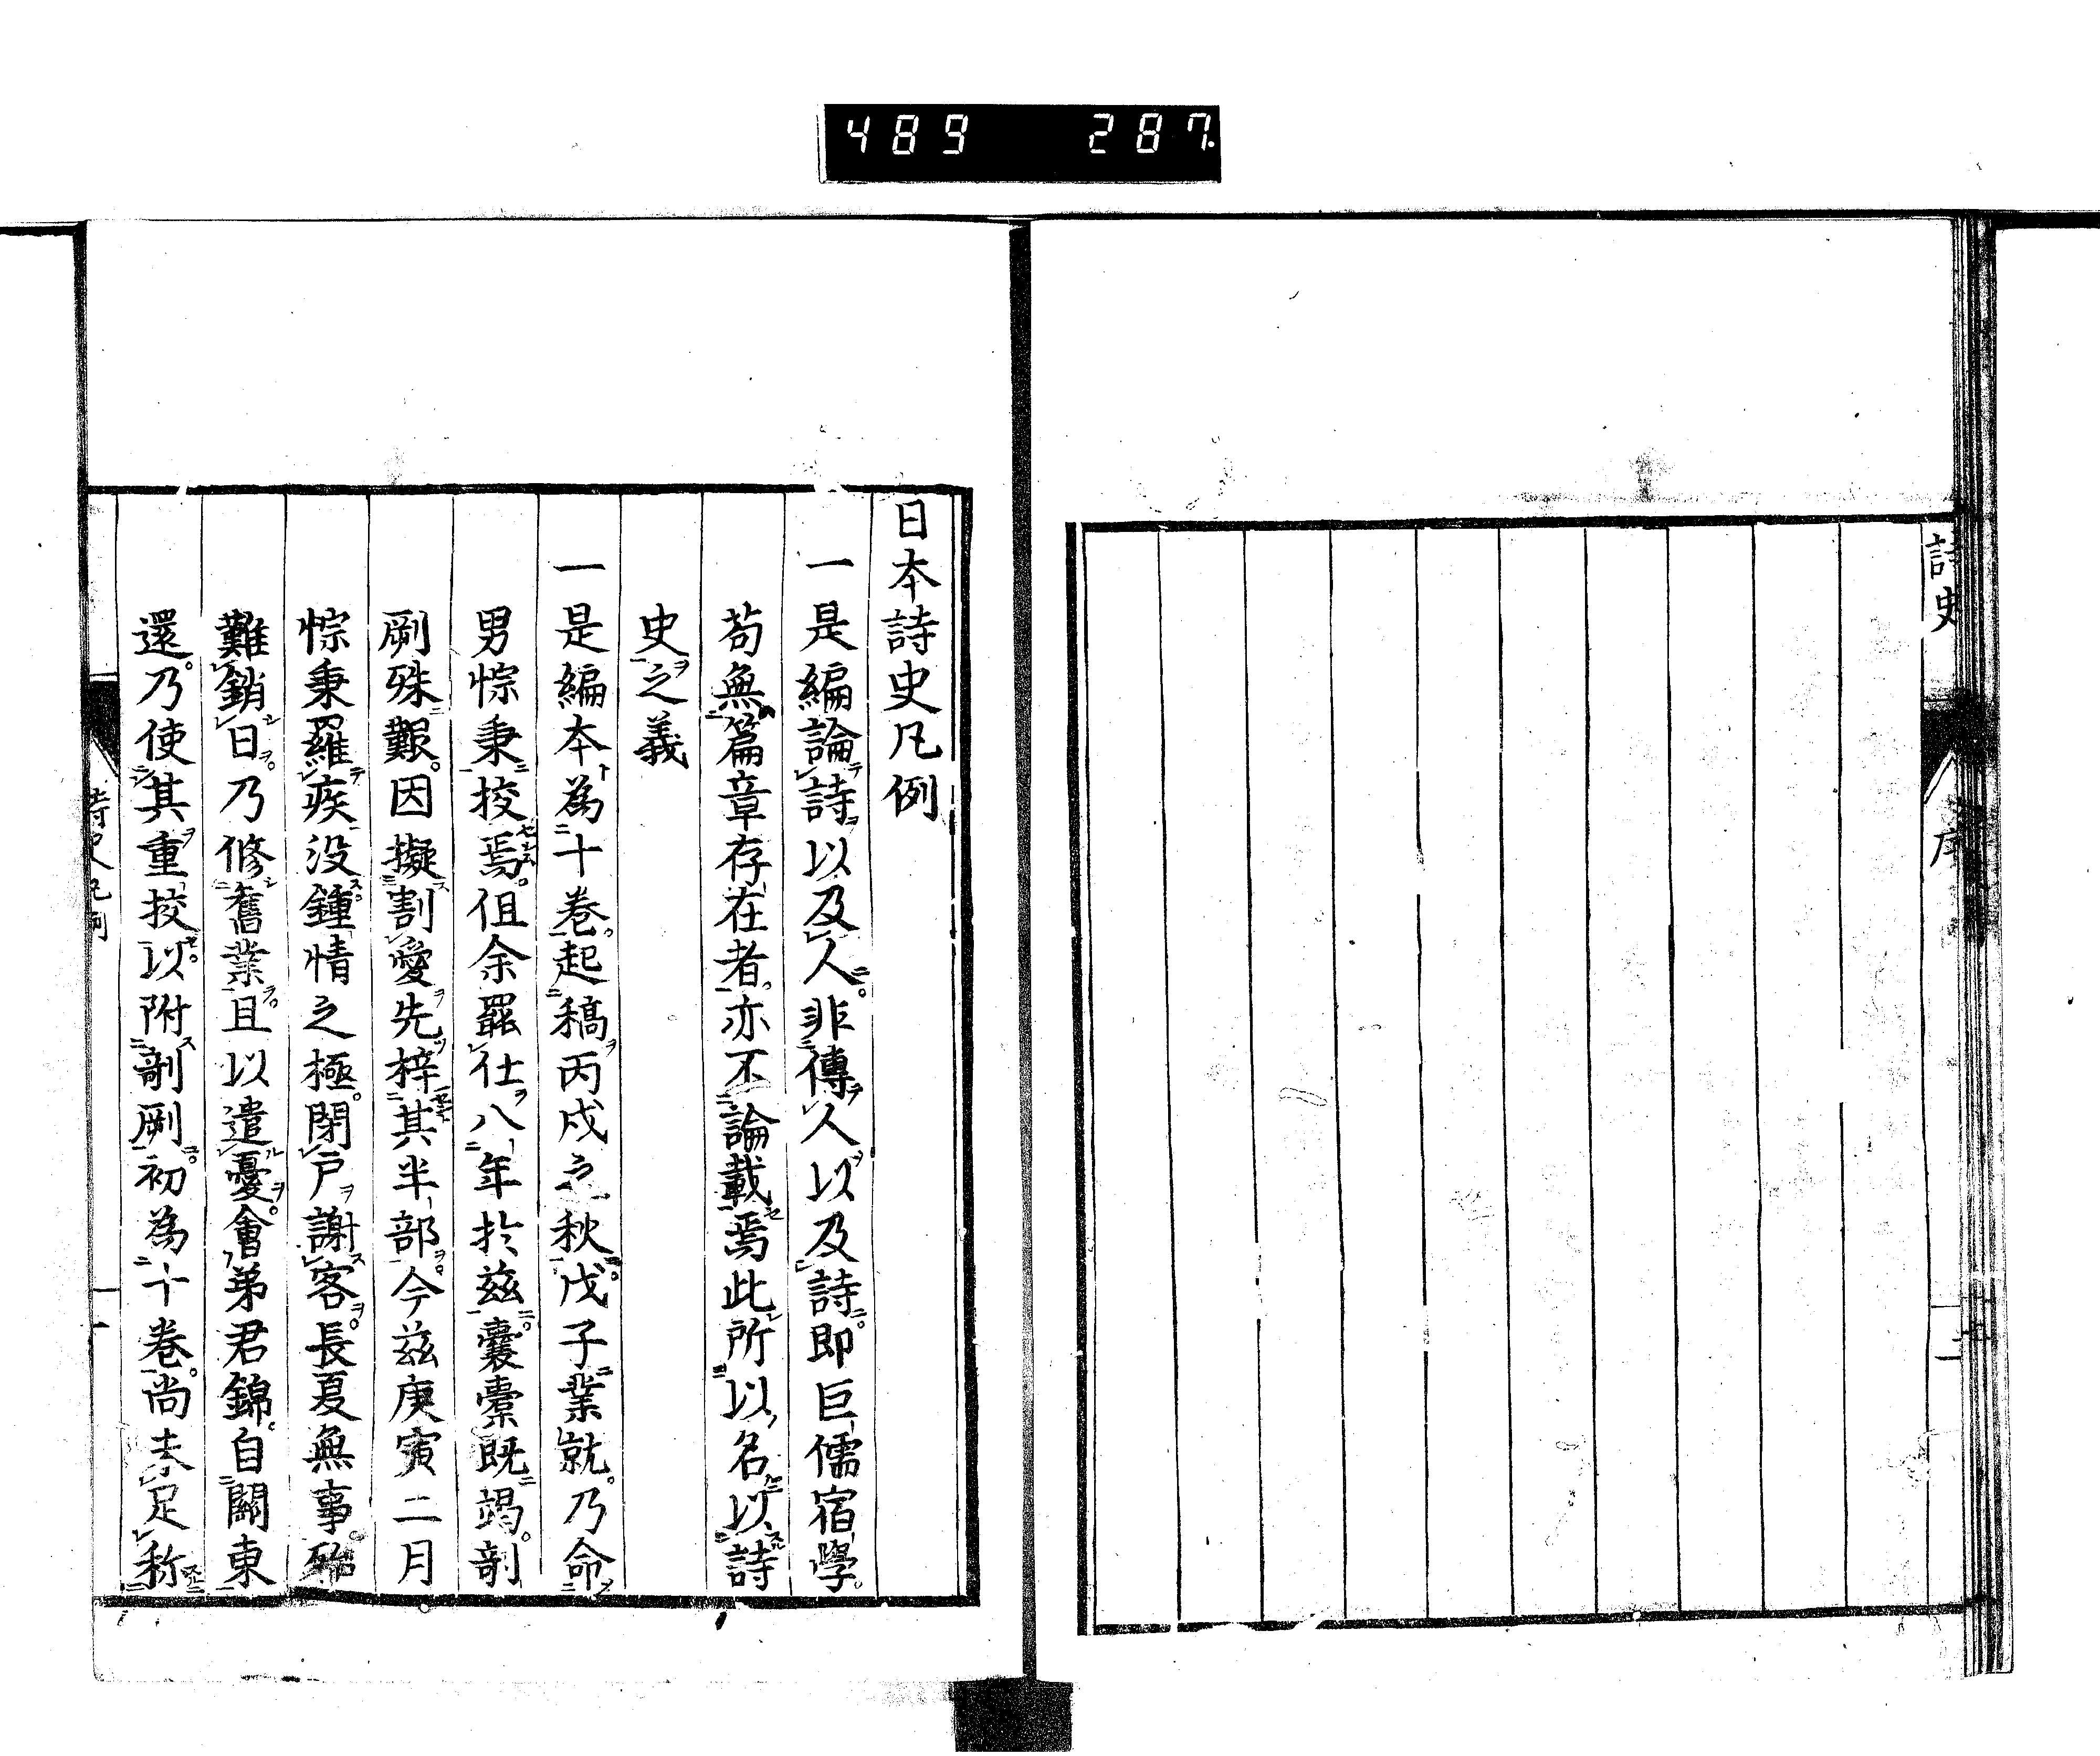 489 287
詩史
序
日本詩史凡例
一是編論詩以及人非傳人以及詩即巨儒宿學
苟無篇章存在者亦不論載焉此所以名以詩
史之義
一是編本為十卷起稿丙戌之秋戊子業就乃命
男悰秉挍焉伹余罷仕八年於玆囊槖既竭剞
劂殊艱因擬割愛先梓其半部今玆庚寅二月
悰秉羅疾没鍾情之極閉戶謝客長夏無事殆
難銷日乃修舊業且以遣憂會弟君錦自關東
還乃使其重挍以附剞劂初為十卷尚未足称
詩史凡例